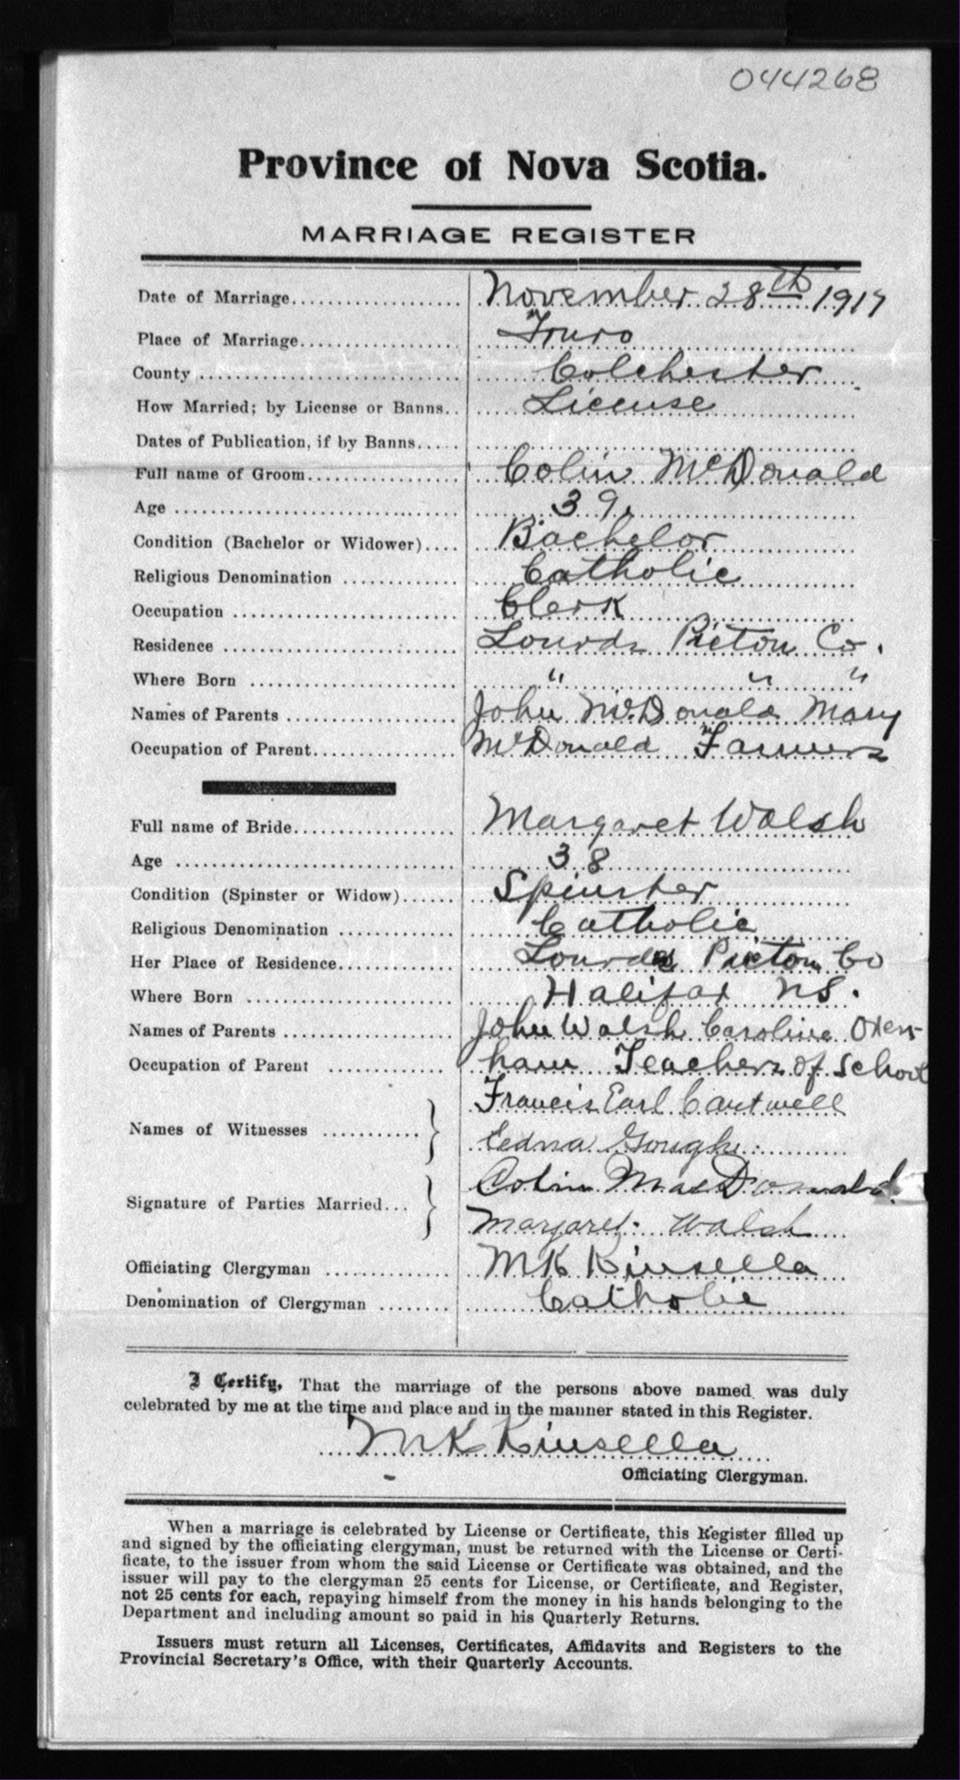 044268
Province of Nova Scotia.
MARRIAGE REGISTER
Date of Marriage.................. November 28th 1917
Place of Marriage.................. Truro
County .............................. Colchester
How Married; by License or Banns.. License
Dates of Publication, if by Banns.....
Full name of Groom................. Colin McDonald
Age .............................. 39
Condition (Bachelor or Widower).... Bachelor
Religious Denomination ............. Catholic
Occupation ......................... Clerk
Residence .......................... Lourdes Pictou Co.
Where Born ........................ " " "
Names of Parents ................... John McDonald Mary
Occupation of Parent................ McDonald Farmers
Full name of Bride.................. Margaret Walsh
Age .............................. 38
Condition (Spinster or Widow)...... Spinster
Religious Denomination ............. Catholic
Her Place of Residence.............. Lourdes Pictou Co
Where Born ........................ Halifax NS.
Names of Parents ................... John Walsh Caroline Oxen-
Occupation of Parent ............... ham Teachers of School
Francis Earl Cantwell
Names of Witnesses ............
Eedna Gough
Colin MacDonald
Signature of Parties Married...
Margaret Walsh
Officiating Clergyman .............. MK Kinsella
Denomination of Clergyman ........ Catholic
I Certify, That the marriage of the persons above named was duly
celebrated by me at the time and place and in the manner stated in this Register.
MK Kinsella
Officiating Clergyman.
When a marriage is celebrated by License or Certificate, this Register filled up
and signed by the officiating clergyman, must be returned with the License or Certi-
ficate, to the issuer from whom the said License or Certificate was obtained, and the
issuer will pay to the clergyman 25 cents for License, or Certificate, and Register,
not 25 cents for each, repaying himself from the money in his hands belonging to the
Department and including amount so paid in his Quarterly Returns.
Issuers must return all Licenses, Certificates, Affidavits and Registers to the
Provincial Secretary's Office, with their Quarterly Accounts.